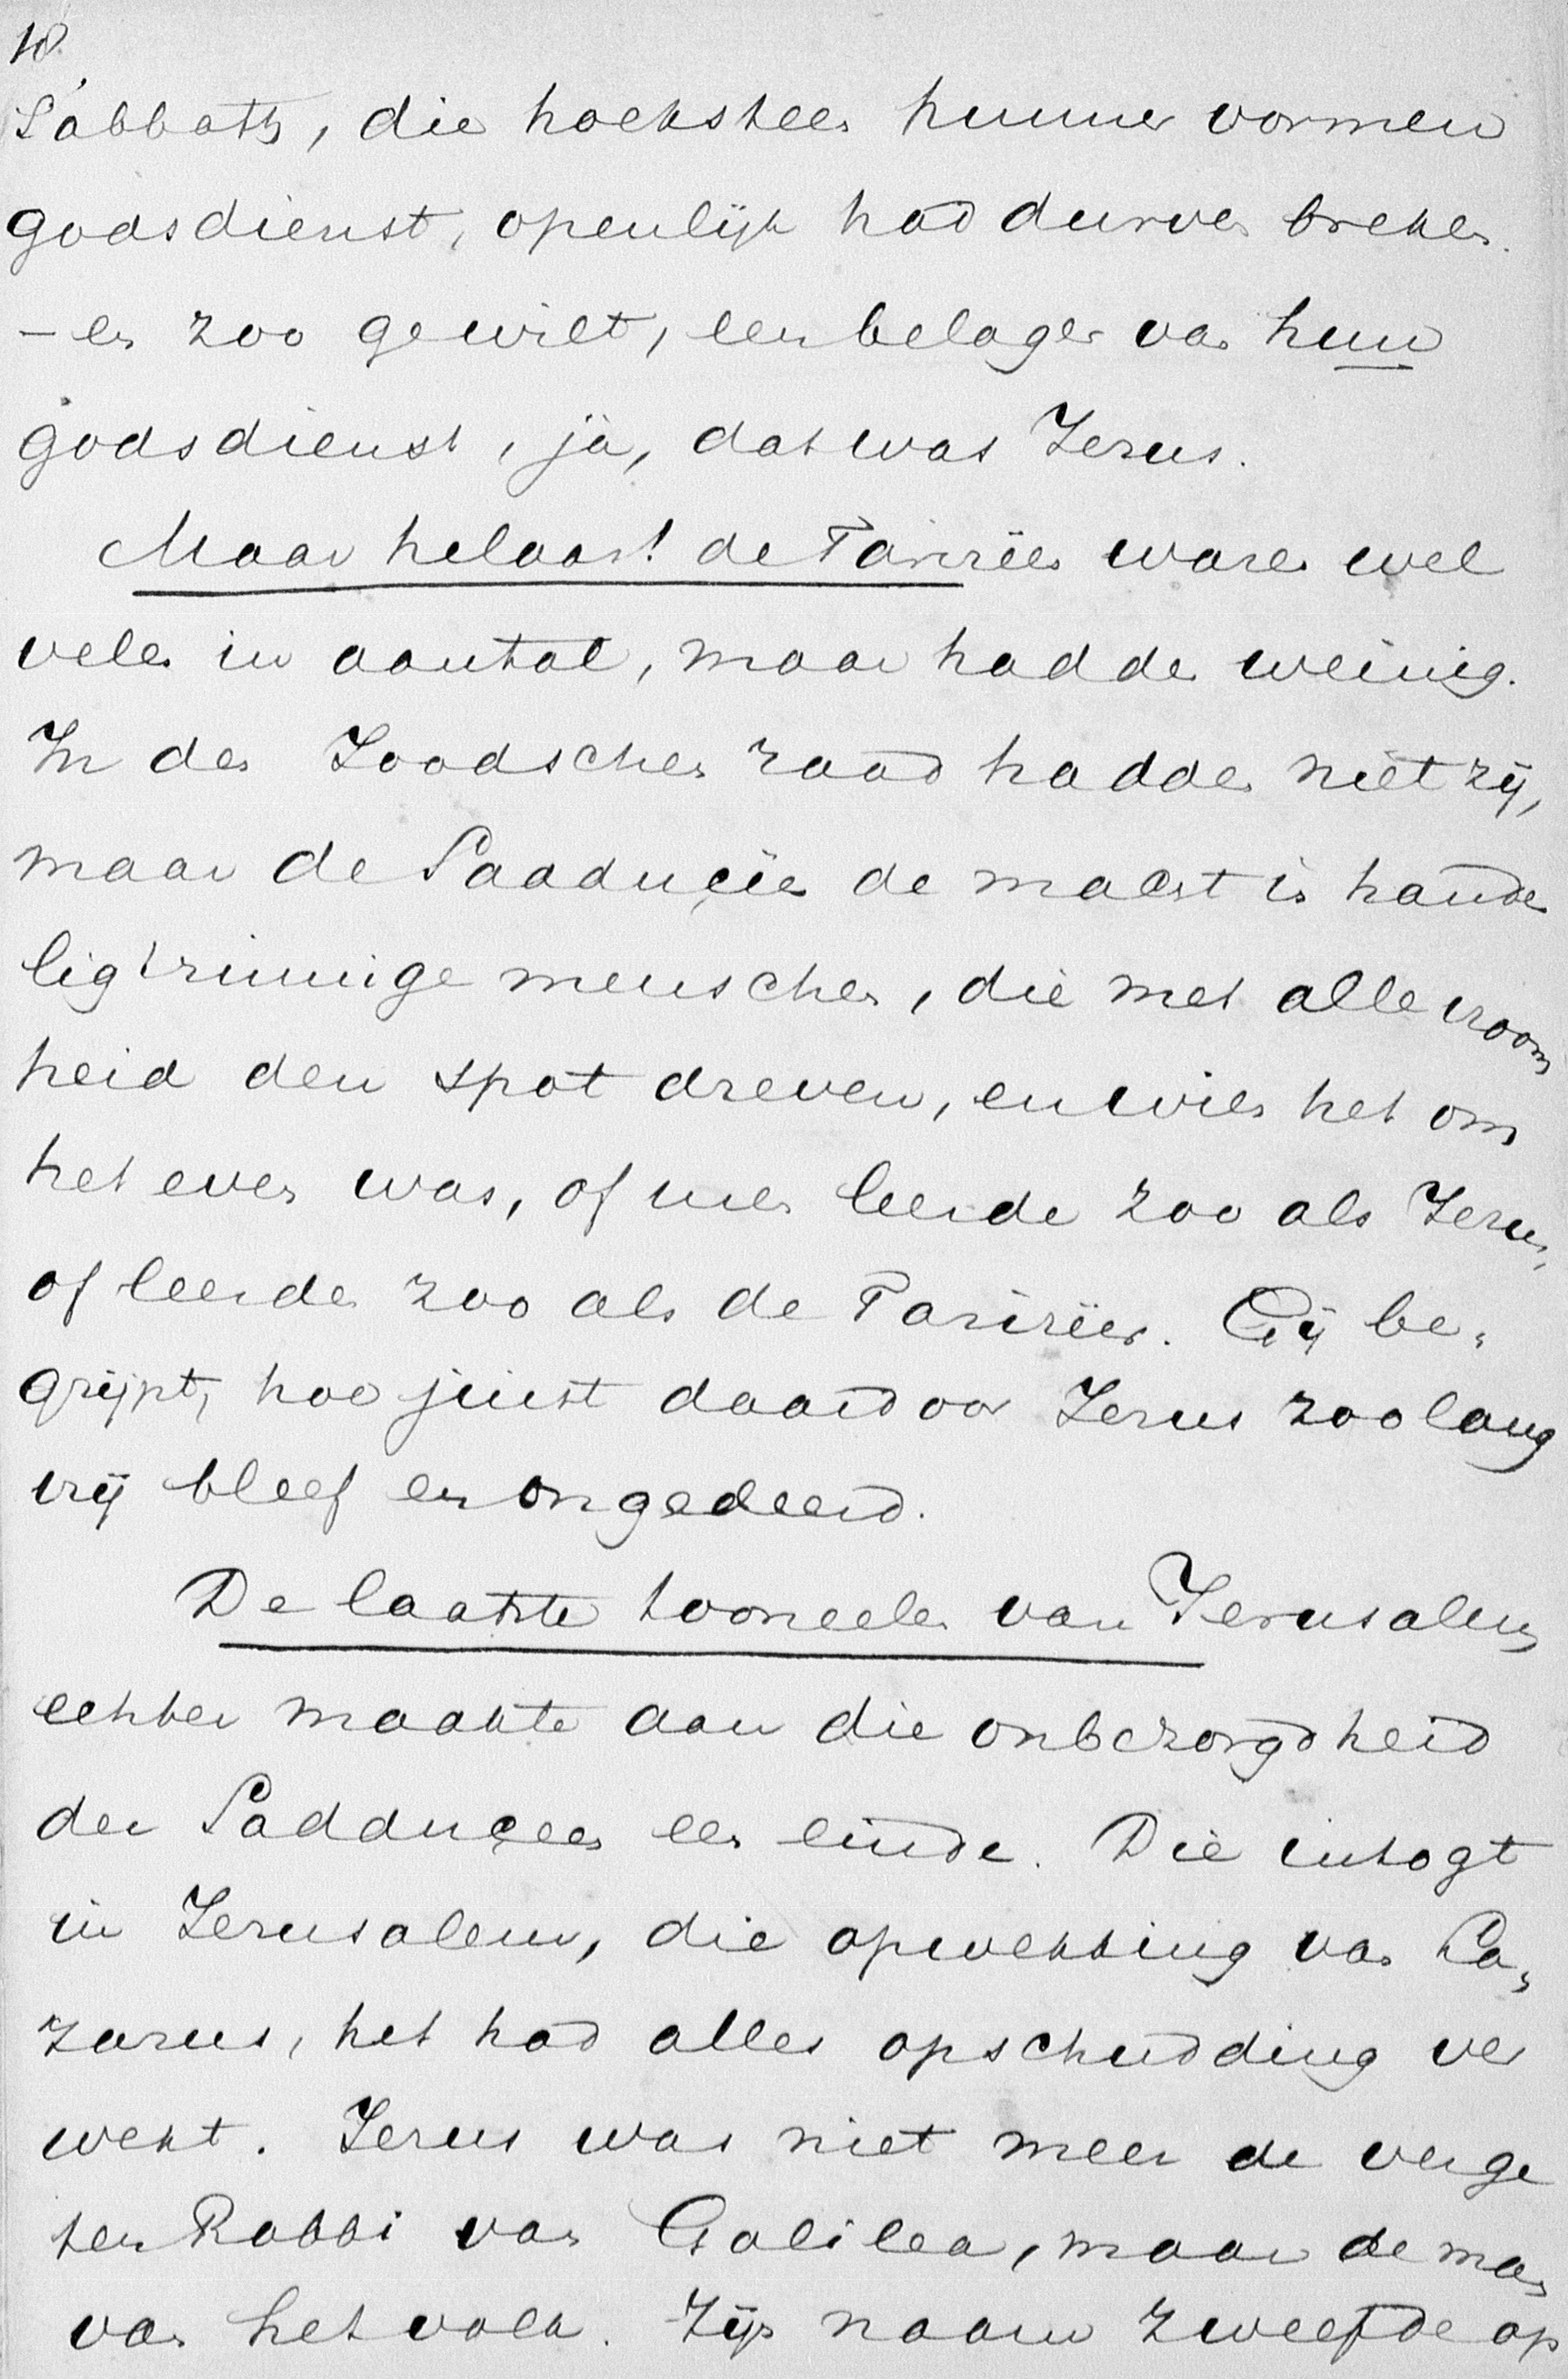 18.
Sabbaths, die hoeksteen hunner vormen
godsdienst, openlijk had durven breken.
– en zoo gewilt, een belager van hun
godsdienst, ja, dat was Jezus.
Maar helaas! de Farizëen waren wel
velen in aantal, maar hadden weinig.
In den Joodschen raad hadden niet zij,
maar de Sadduceën de macht in handen
ligtzinnige menschen, die met alle vroom
heid den spot dreven, en wien het om
het even was, of men leerde zoo als Jezus,
of leerde zoo als de Farizëer. Gij be„
grijpt, hoe juist daardoor Jezus zoo lang
vrij bleef en ongedeerd.
De laatste tooneelen van Jerusalem
echter maakte aan die onbezorgdheid
der Sadduceen een einde. Die intogt
in Jerusalem, die opwekking van La„
zarus, het had alles opschudding ver
wekt. Jezus was niet meer de verge
ten Rabbi van Galilea, maar de man
van het volk. Zijn naam zweefde op